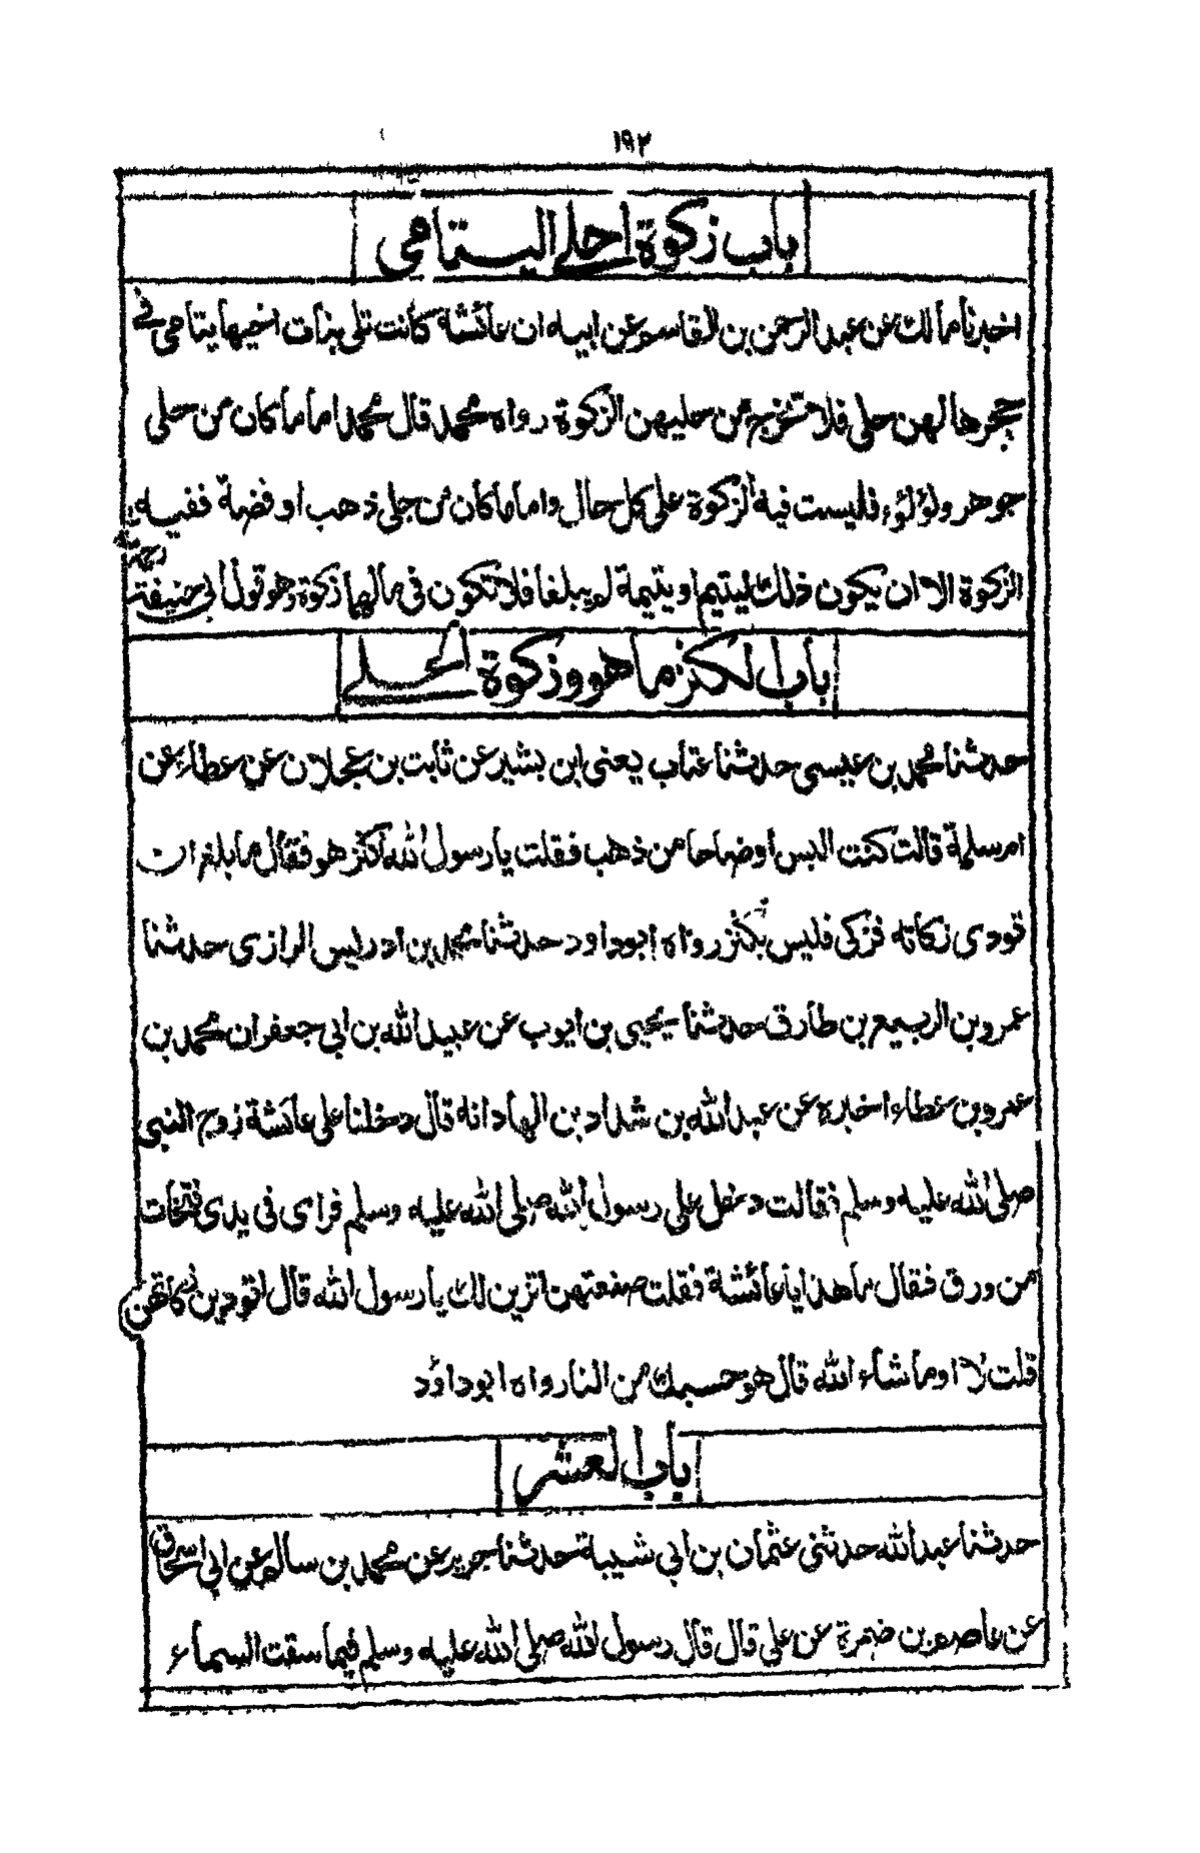 ١٩٢
باب زكوة احلے اليتامى
اخبرنا مالك عن عبد الرحمن بن القاسم عن ابيه ان عائشة كانت تلى بنات اخيها يتامى فى
حجرها لهن حلى فلا تخرج من حليهن الزكوة رواه محمد قال محمد اما ما كان من حلى
جوهر ولؤلؤء فليست فيه الزكوة على كل حال واما ما كان من حلى ذهب او فضة ففيه
الزكوة الا ان يكون ذلك ليتيم او يتيمة لم يبلغا فلا تكون فى مالهما زكوة وهو قول ابى حنيفة
باب الكنز ما هو وزكوة الحلے
حدثنا محمد بن عيسى حدثنا عتاب يعنى ابن بشير عن ثابت بن عجلان عن عطاء عن
ام سلمة قالت كنت البس اوضاحا من ذهب فقلت يا رسول الله اكنز هو فقال ما بلغ ان
تودى زكاته فزكى فليس بكنز رواه ابوداود حدثنا محمد بن ادريس الرازى حدثنا
عمرو بن الربيع بن طارق حدثنا يحيى بن ايوب عن عبيد الله بن ابى جعفر ان محمد بن
عمرو بن عطاء اخبره عن عبد الله بن شداد بن الهاد انه قال دخلنا على عائشة زوج النبى
صلى الله عليه وسلم فقالت دخل على رسول الله صلى الله عليه وسلم فراى فى يدى فتخات
من ورق فقال ما هذا يا عائشة فقلت صنعتهن اتزين لك يا رسول الله قال اتودين زكاتهن
قلت لا او ما شاء الله قال هو حسبك من النار رواه ابوداؤد
باب العشر
حدثنا عبد الله حدثنى عثمان بن ابى شيبة حدثنا جرير عن محمد بن سالم عن ابى اسحاق
عن عاصم بن ضمرة عن على قال قال رسول الله صلى الله عليه وسلم فيما سقت السماء